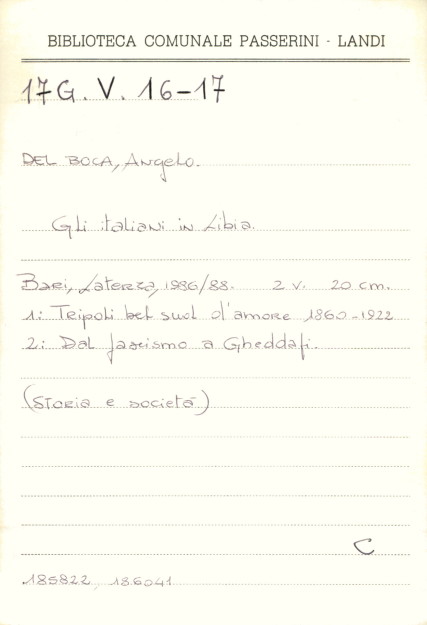 BIBLIOTECA COMUNALE PASSERINI - LANDI
17G. V. 16-17
DEL BOCA, Angelo.
Gli italiani in Libia.
Bari, Laterza, 1986/88. 2 v. 20 cm.
1: Tripoli bel suol d'amore 1860-1922
2: Dal fascismo a Gheddafi.
(Storia e società)
C
185822, 186041